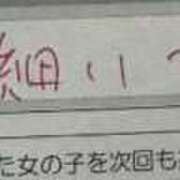 細い
た女の子を次回も